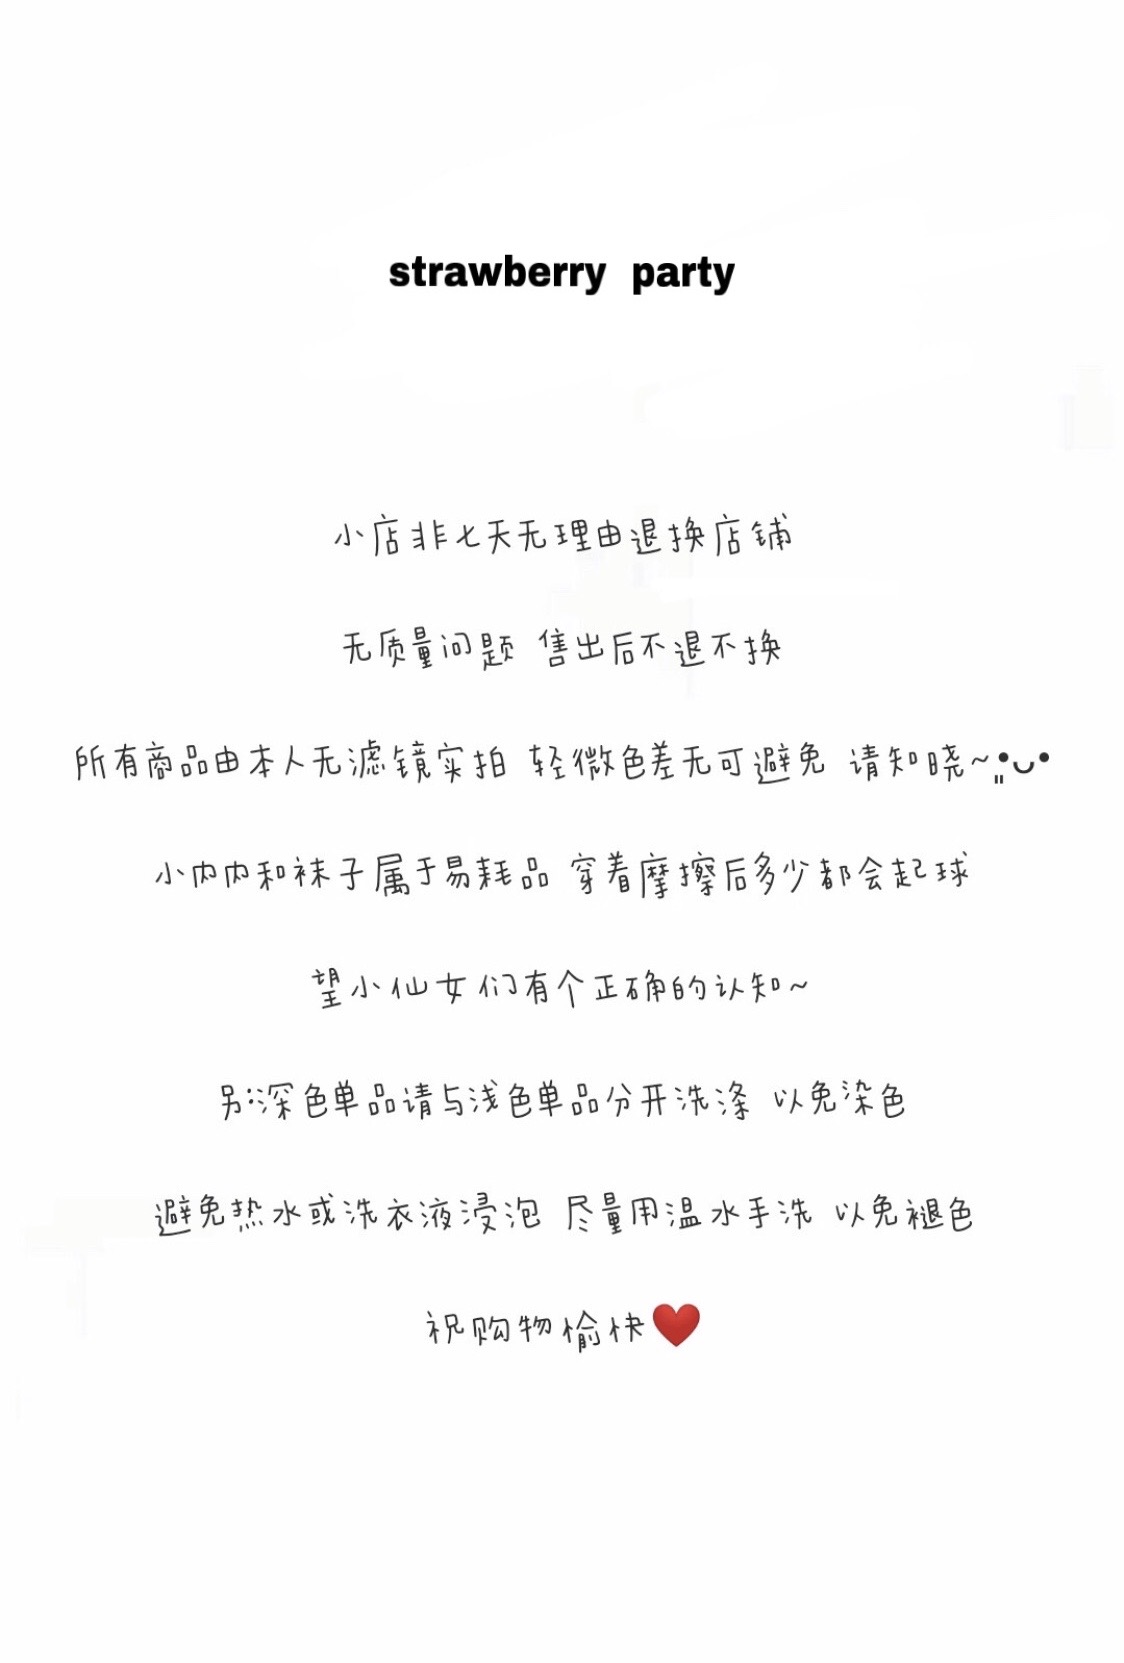 strawberry party
小店非七天无理由退换店铺
无质量问题 售出后不退不换
所有商品由本人无滤镜实拍 轻微色差无可避免 请知晓~•ᴗ•
小内内和袜子属于易耗品 穿着摩擦后多少都会起球
望小仙女们有个正确的认知~
另:深色单品请与浅色单品分开洗涤 以免染色
避免热水或洗衣液浸泡 尽量用温水手洗 以免褪色
祝购物愉快❤️